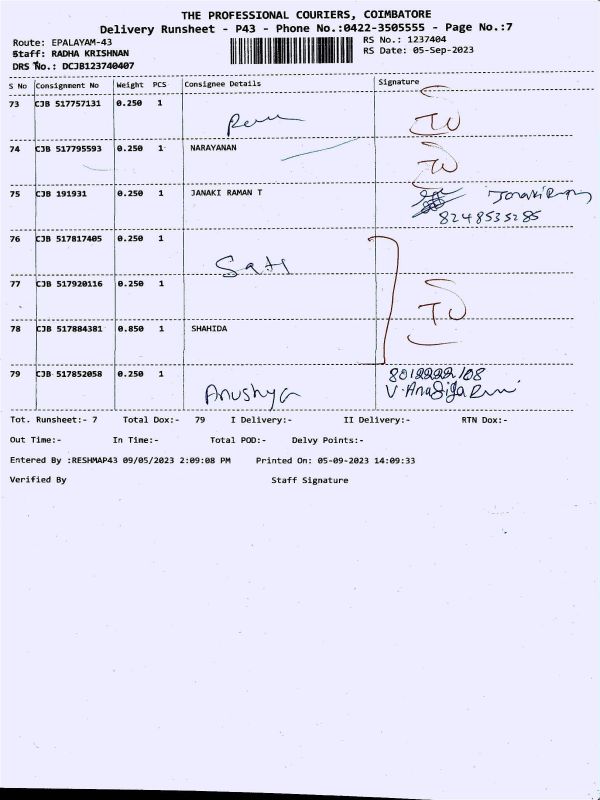 THE PROFESSIONAL COURIERS, COIMBATORE
Delivery Runsheet - P43 - Phone No.:0422-3505555 - Page No.:7
Route: EPALAYAM-43 RS No.: 1237404
Staff: RADHA KRISHNAN RS Date: 05-Sep-2023
DRS No.: DCJB123740407
S No Consignment No Weight PCS Consignee Details Signature
73 CJB 517757131 0.250 1
74 CJB 517795593 0.250 1 NARAYANAN
75 CJB 191931 1 0.250 1 JANAKI RAMAN T
8248535285
76 CJB 517817405 0.250 1
77 CJB 517920116 0.250 1
78 CJB 517884381 0.850 1 SHAHIDA
79 CJB 517852058 0.250 1 Anushya
Tot. Runsheet:- 7 Total Dox:- 79 I Delivery:- II Delivery:- RTN Dox:-
Out Time:- In Time:- Total POD:- Delvy Points:-
Entered By :RESHMAP43 09/05/2023 2:09:08 PM Printed On: 05-09-2023 14:09:33
Verified By Staff Signature